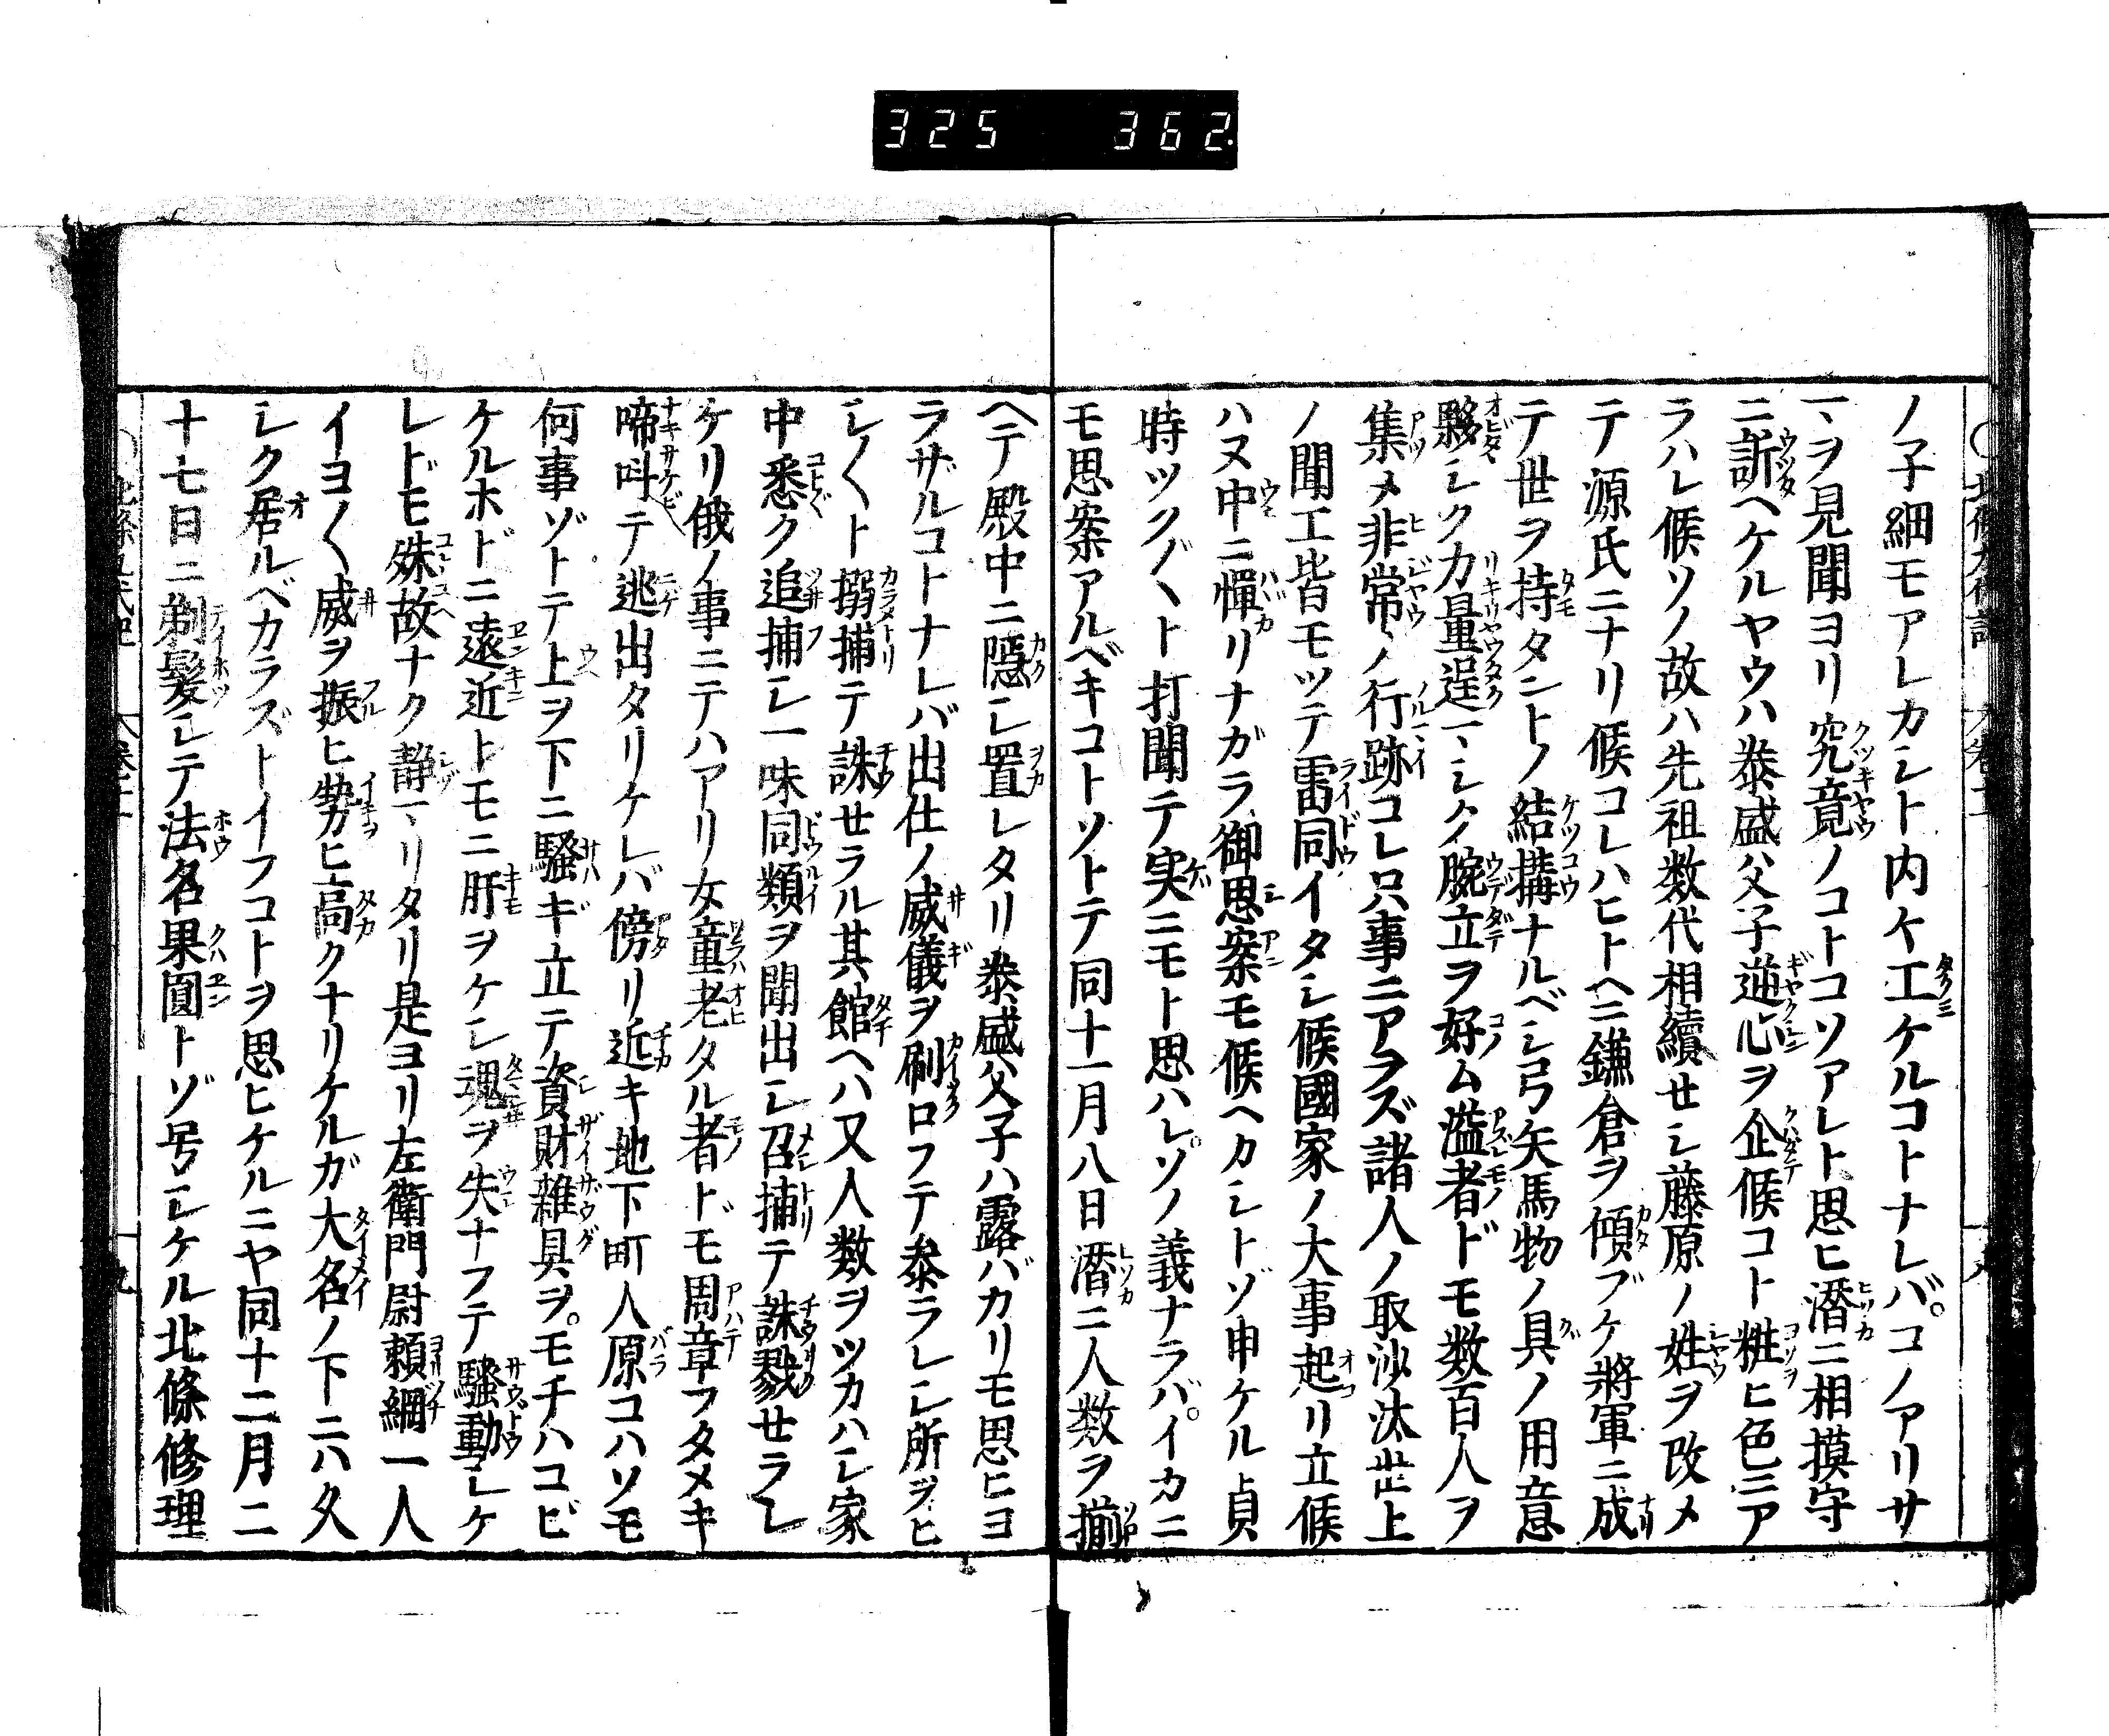 325 362
ノ子細モアレカシト内々工ケルコトナレバ。コノアリサ
マヲ見聞ヨリ究竟ノコトコソアレト思ヒ潜ニ相摸守
ニ訴ヘケルヤウハ泰盛父子逆心ヲ企候コト粧ヒ色ニア
ラハレ候ソノ故ハ先祖数代相續セシ藤原ノ姓ヲ改メ
テ源氏ニナリ候コレハヒトヘニ鎌倉ヲ傾ブケ將軍ニ成
テ世ヲ持タントノ結構ナルベシ弓矢馬物ノ具ノ用意
夥シク力量逞マシク腕立ヲ好ム溢者ドモ数百人ヲ
集メ非常ノ行跡コレ只事ニアラズ諸人ノ取沙汰世上
ノ聞エ皆モツテ雷同イタシ候國家ノ大事起リ立候
ハヌ中ニ憚リナガラ御思案モ候ヘカシトゾ申ケル貞
時ツク〲ト打聞テ実ニモト思ハレ。ソノ義ナラバ。イカニ
モ思案アルベキコトソトテ同十一月八日潜ニ人数ヲ揃
ヘテ殿中ニ隱シ置レタリ泰盛父子ハ露バカリモ思ヒヨ
ラザルコトナレバ出仕ノ威儀ヲ刷ロフテ参ラレシ所ヲヒ
シ〱ト搦捕テ誅セラル其館ヘハ又人数ヲツカハシ家
中悉ク追捕シ一味同類ヲ聞出シ召捕テ誅戮セラレ
ケリ俄ノ事ニテハアリ女童老タル者ドモ周章フタメキ
啼叫テ逃出タリケレバ傍リ近キ地下町人原コハソモ
何事ゾトテ上ヲ下ニ騒ギ立テ資財雜具ヲ。モチハコビ
ケルホドニ遠近トモニ肝ヲケシ魂ヲ失ナフテ騒動シケ
レドモ殊故ナク静マリタリ是ヨリ左衛門尉頼綱一人
イヨ〱威ヲ振ヒ勢ヒ高クナリケルガ大名ノ下ニハ久
シク居ルベカラズトイフコトヲ思ヒケルニヤ同十二月二
十七日ニ剃髮シテ法名果圓トゾ号シケル北條修理